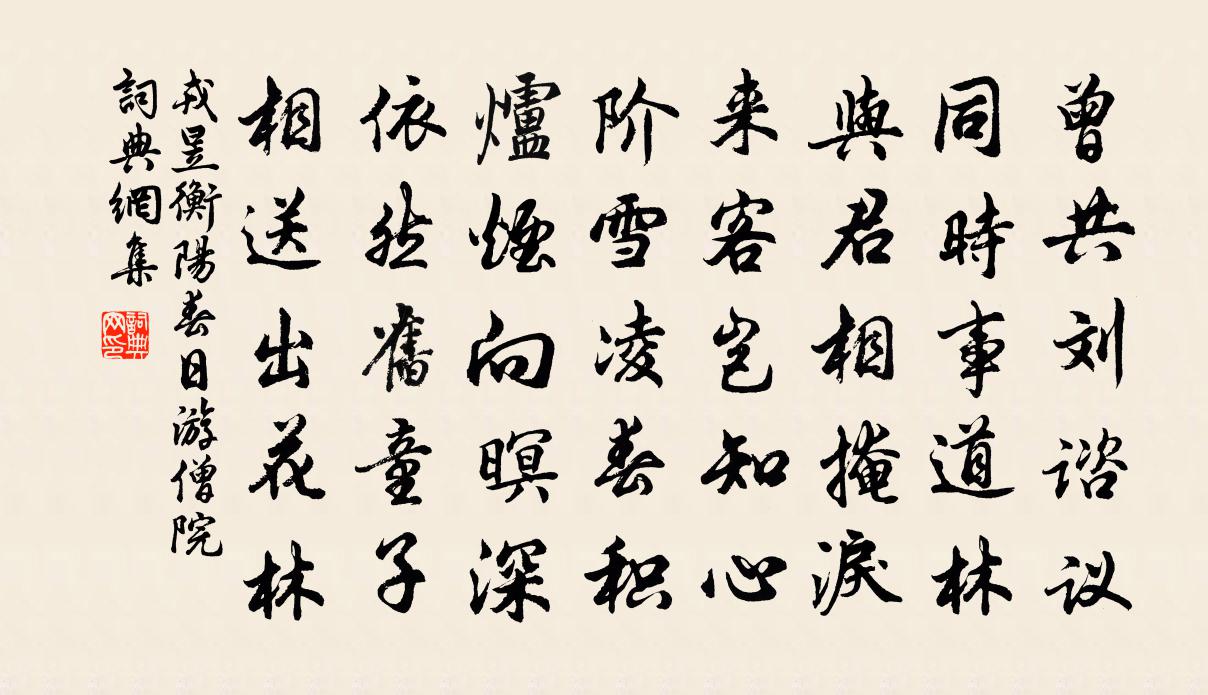 曾共刘谘议
同時事道林
與君相掩淚
来客岂知心
阶雪凌春积
爐煙向暝深
依然舊童子
相送出花林
戎昱衡陽春日游僧院
詞典網集
詞典网印